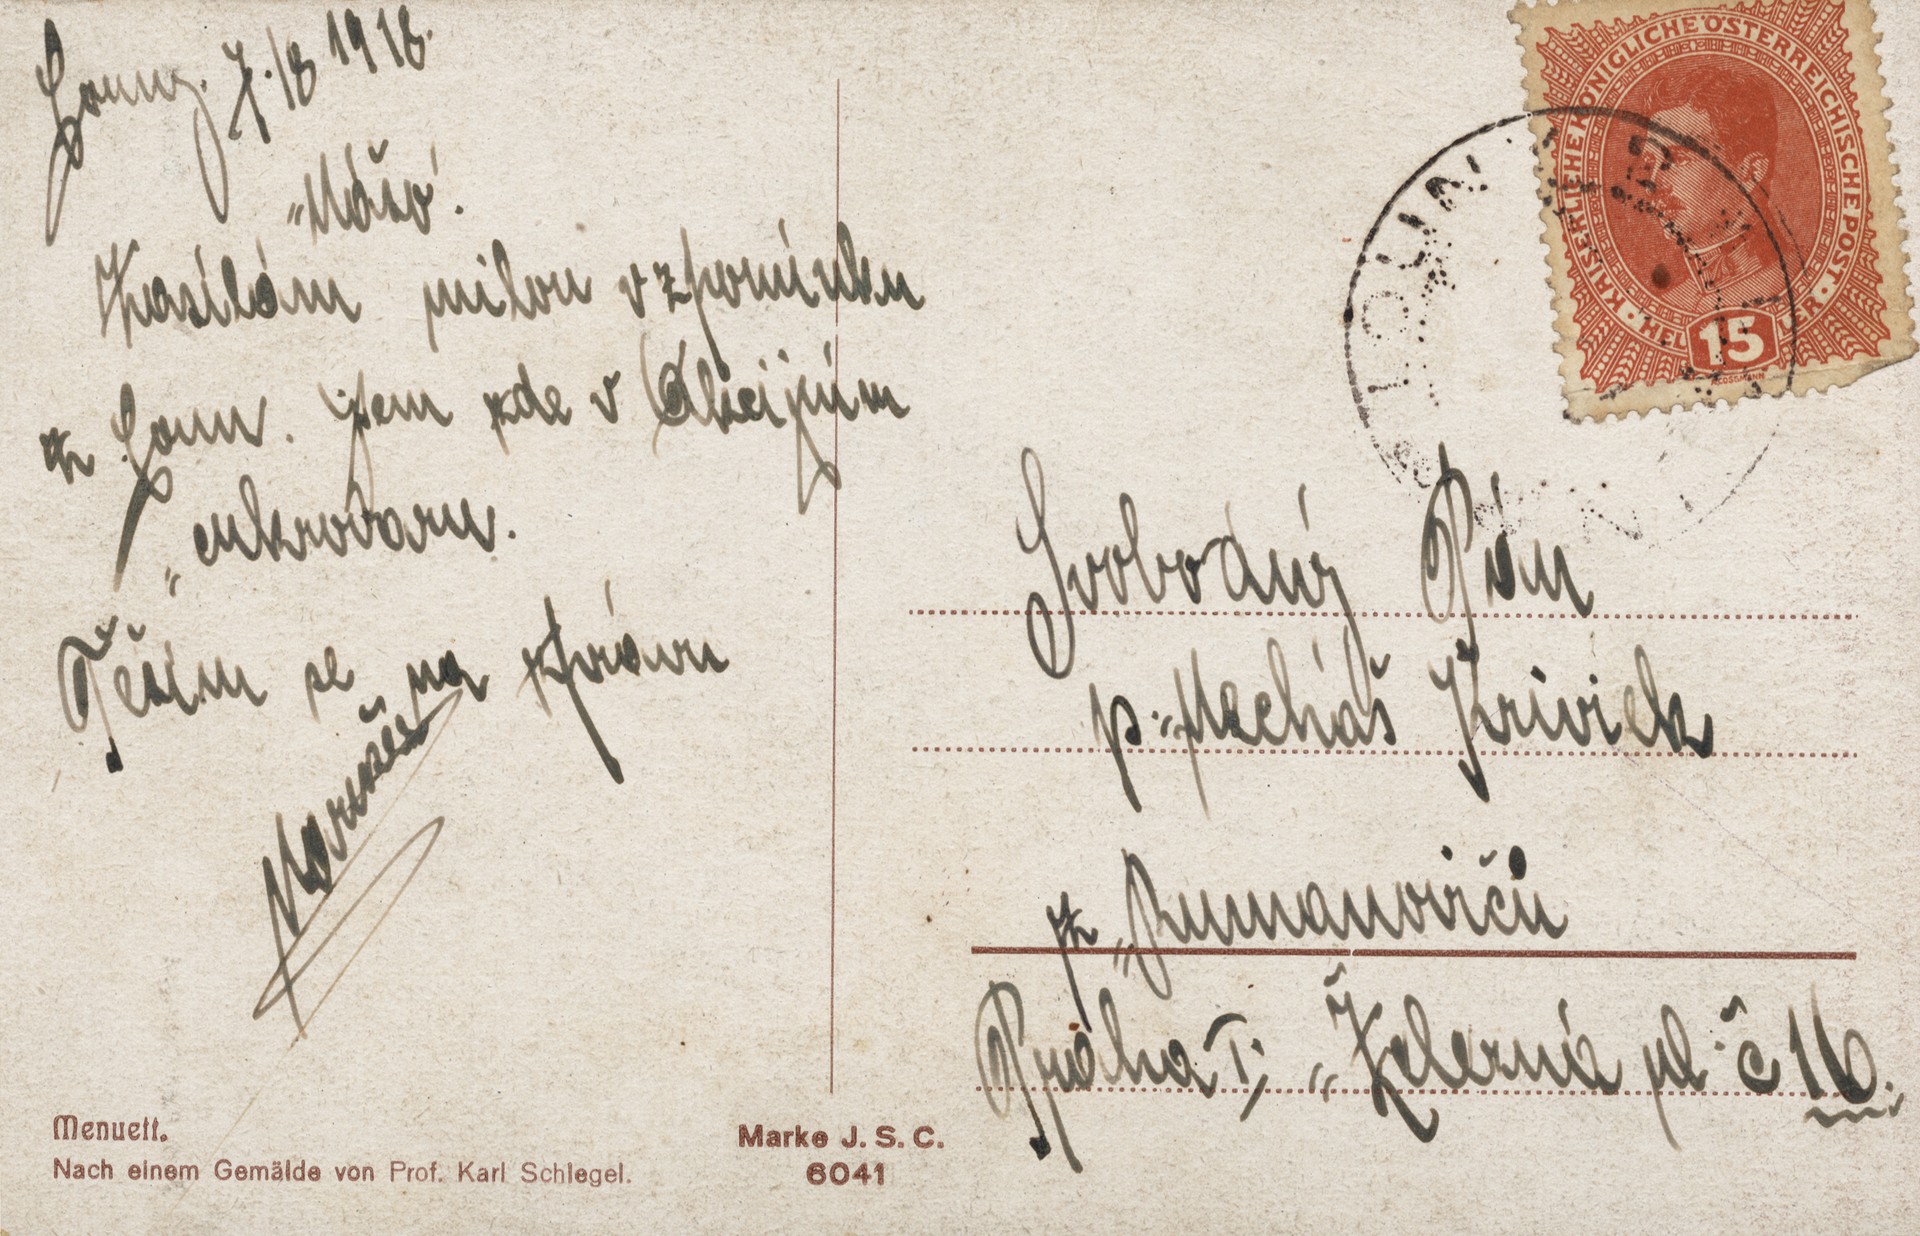 Louny. 7./8 1918.
"Mášo".
Zasílám milou vzpomínku
z Loun. jsem zde v
"cukrovaru.
Těším se na zprávu
KAISERLICHE KÖNIGLICHE ÖSTERREICHISCHE POST
HEL 15 LER
LOUN
Svobodný Pán
p.
z
Praha I, "Železná ul. č 16.
Menuett.
Nach einem Gemälde von Prof. Karl Schlegel.
Marke J. S. C.
6041